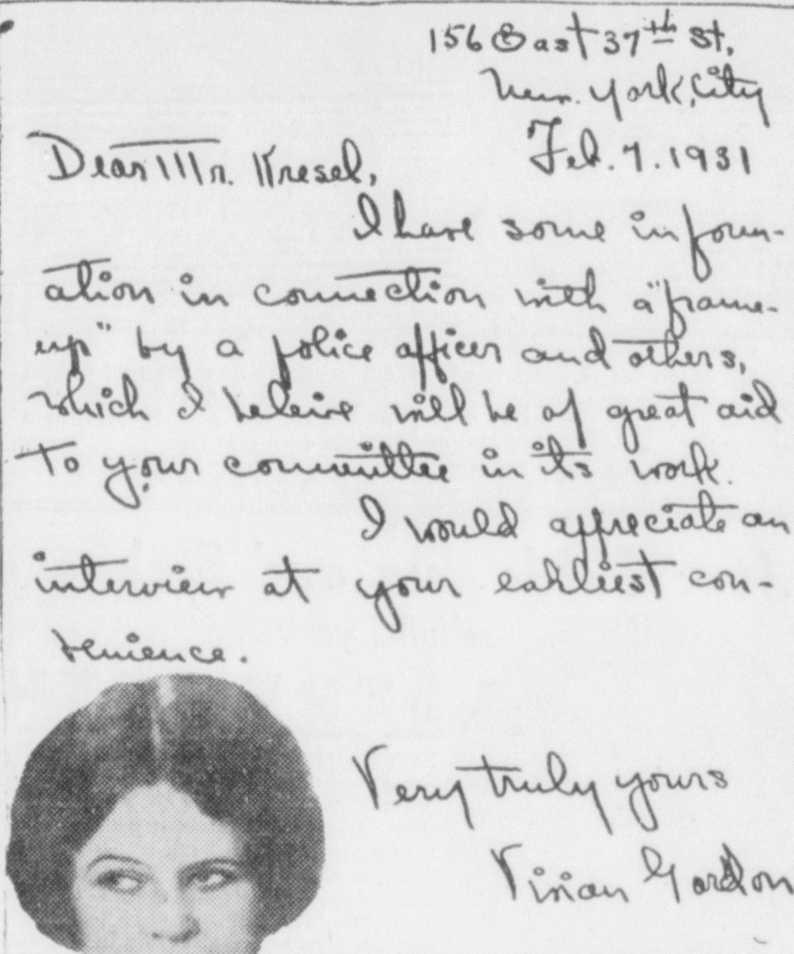 156 East 37th St,
New York, City
Feb. 7. 1931
Dear Mr. Kresel,
I have some inform-
ation in connection with a "frame-
up" by a police officer and others,
which I beleive will be of great aid
to your committee in its work.
I would appreciate an
interview at your earliest con-
venience.
Very truly yours
Vivian Gordon